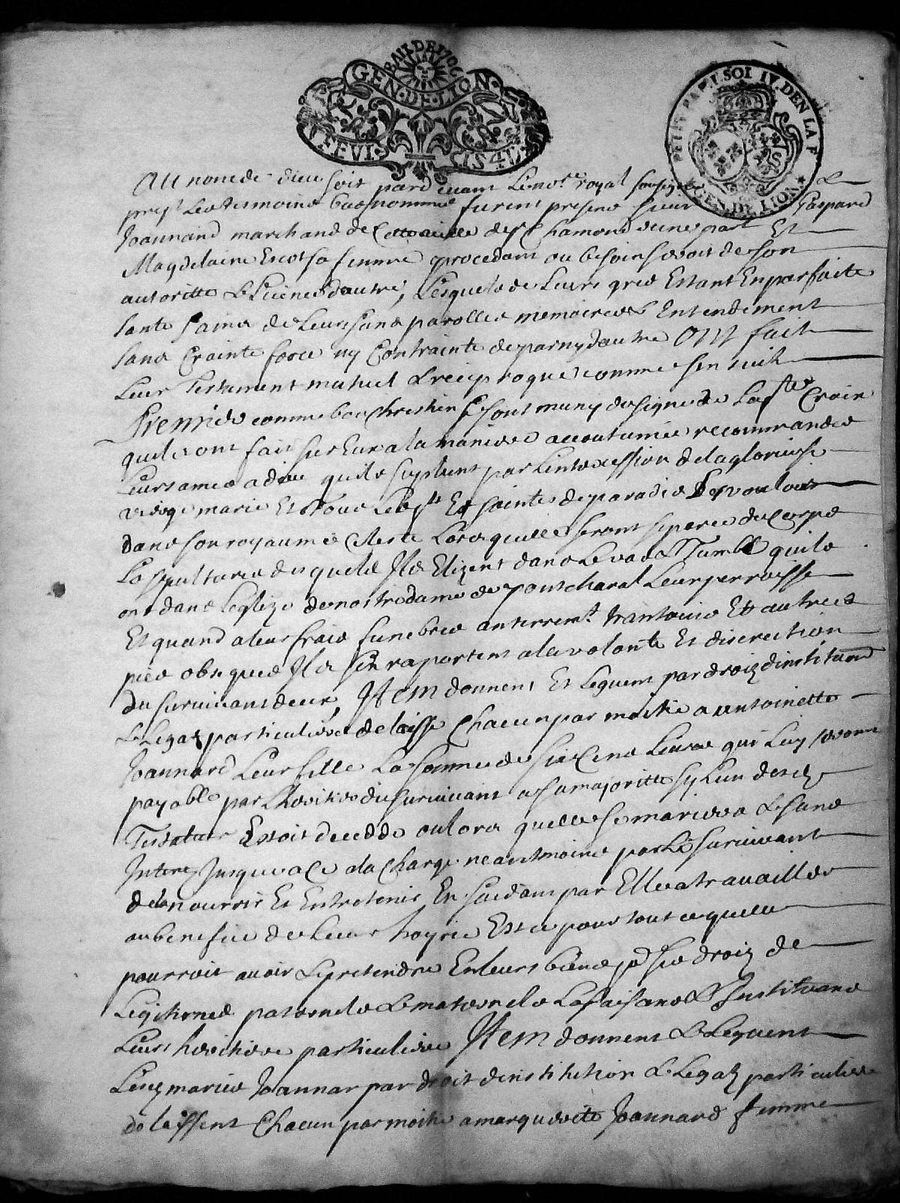 GEN. DE. LION
PETIT PAP. 1. SOL IV. DEN LA F
GEN. DE LION
Au nom de dieu soit pardevant le no.re royal soubsigné &
pre.s les tesmoins bas nommes furent presens sieur Gaspard
Joannard marchand de la ville de S.t Chamond d'une part Et
Magdelaine Escot sa femme procedant au besoin seroit de son
autoritte & licence d'autre, lesquels de leurs grés Estant En parfaite
santé sains de leurs sens parolles memoires & Entendement
sans Crainte force ny Contrainte de par ny d'autre Ont fait
Leur Testament mutuel & reciproque comme s'en suit
Premier comme bons Chrestiens se sont munys du signe de La s.te Croix
quils ont fait sur Eux a la maniere accoutumée recommandé
Leurs ames a dieu quils suplient par l'intercession de la glorieuse
vierge marie Et tous les s.ts Et saintes de paradis Les vouloir
dans son royaume Celeste Lorsquelles seront separées du Corps
La sepulture desquels Ils Elizent dans le vas & Tumbe quils
ont dans leglize de nostre dame de pontcharal Leur perroisse
Et quand a leur frais funebres anterrem.t trantaine Et autres
pies obseques Ils s'en raportent a la volonté Et discretion
du survivant deux, Item donnent Et Leguent par droit d'institu.on
& Legat particulier & delaisse Chacun par moitié a antoinette
Joannard Leur fille La somme de six Cens Livres qui luy seront
payable par l'heritier du survivant a sa majoritté sy l'un desd.
Testateurs Estoit deceddé ou lors quelle se mariera & sans
Interes Jusques a ce a la Charge neantmoins par le survivant
de la nourrir Et Entretenir En faisant par Elle a travailler
au benefice de leur hoyrie Est ce pour tout ce quelle
pourroit avoir & pretendre En leurs biens p.r ses droitz de
Legitimes paternels & maternels La faisans & Instituans
Leurs heritiere particuliere Item donnent & Leguent
Lesd mariés Joannard par droit d'institution & Legat particulier
delaissent Chacun par moitié a marguerite Joannard femme